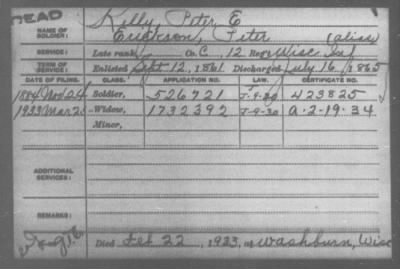 DEAD
NAME OF SOLDIER: Kelly, Peter E
Erickson, Peter (alias)
SERVICE: Late rank Co. C, 12 Reg't Wisc Inf
TERM OF SERVICE: Enlisted Sept 12, 1861 Discharged July 16, 1865
DATE OF FILING. CLASS. APPLICATION NO. LAW. CERTIFICATE NO.
1884 Nov 24 Soldier, 526721 J-9-20 423825
1933 Mar 2 Widow, 1732392 J-9-20 a-2-19-34
Minor,
ADDITIONAL SERVICES:
REMARKS:
Died Feb 22, 1933, at Washburn, Wisc